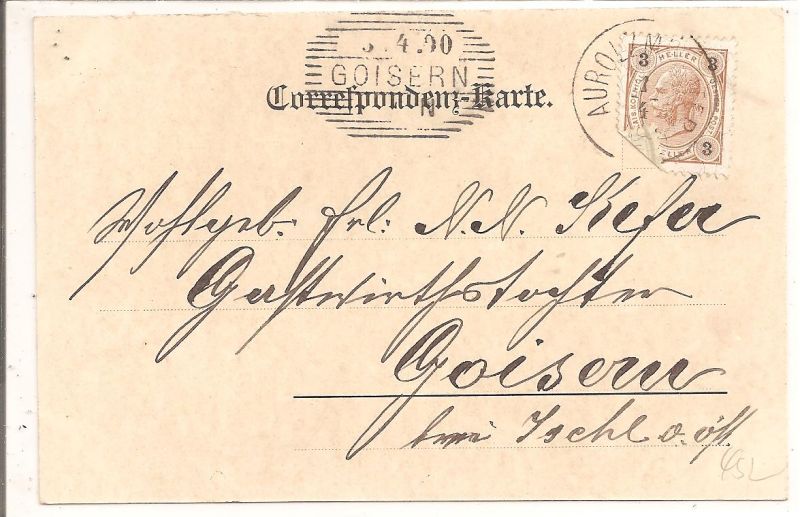 3. 4. 00
GOISERN
N
Correspondenz-Karte.
3 HELLER 3
3
Wohlgeb. Frl: N. N. Kefer
Gastwirthstochter
Goisern
bei Ischl o. öst.